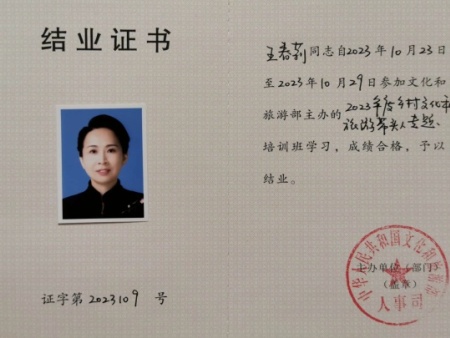 结业证书
证字第 2023109 号
王春莉同志自2023年10月23日
至2023年10月29日参加文化和
旅游部主办的2023年度乡村文化和
旅游带头人专题
培训班学习，成绩合格，予以
结业。
主办单位（部门）
（盖章）
中华人民共和国文化和旅游部
人事司